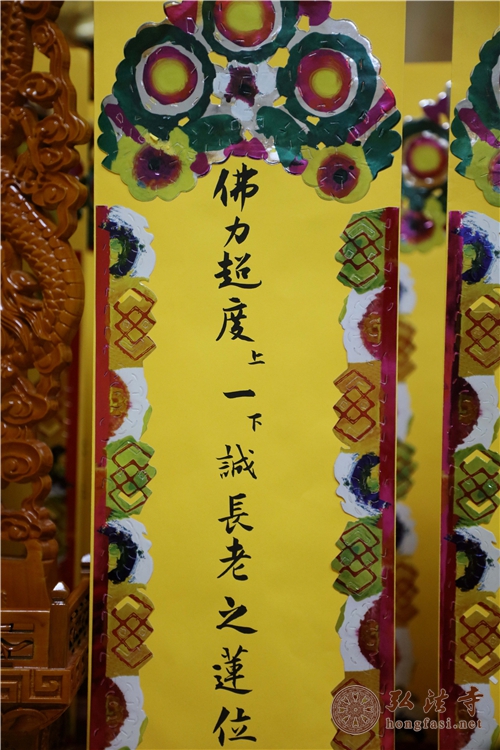 佛力超度上一下誠長老之蓮位
弘法寺
hongfasi.net